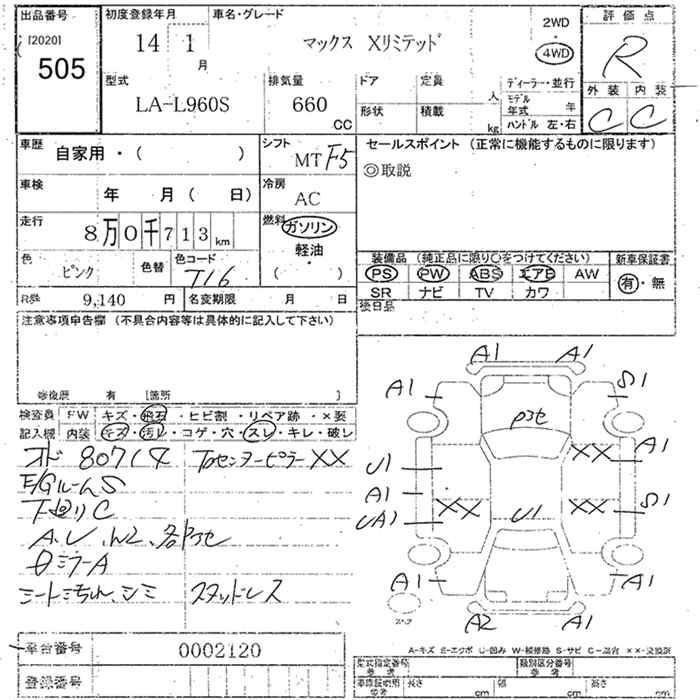 出品番号 初度登録年月 車名・グレード 評価点
[2020] 14 1 月 マックス Xリミテッド 2WD 4WD R
505
型式 排気量 ドア 定員 ディーラー・並行 外装 内装
LA-L960S 660 CC 形状 積載 人 kg モデル年式 年 C C
ハンドル 左・右
車歴 自家用・( ) シフト MT F5 セールスポイント (正常に機能するものに限ります)
◎取説
車検 年 月( 日) 冷房 AC
走行 8万0千713km 燃料 ガソリン
軽油・( )
色 ピンク 色替 色コード T16
装備品 (純正品に限り○をつけてください) 新車保証書
PS PW ABS エアB AW 有・無
SR ナビ TV カワ
R券 9,140 円 名変期限 月 日 後日品
注意事項申告欄 (不具合内容等は具体的に記入して下さい)
修復歴 有 [箇所 ]
検査員 FW キズ・飛石・ヒビ割・リペア跡・×要
記入欄 内装 キズ・汚レ・コゲ・穴・スレ・キレ・破レ
A1 A1
A1 S1
U1 XX A1
A1 S1
UA1 XX U1 XX
A1 A1
A2 A1
80714 ピラーXX
E/GルームS
下廻りC
ミラーA
シミ スタッドレス
A-キズ E-エクボ U-凹み W-補修跡 S-サビ C-腐食 ××-交換済
車台番号 0002120
登録番号
型式指定番号 参考 類別区分番号 参考
参考 長さ cm 幅 cm 高さ cm